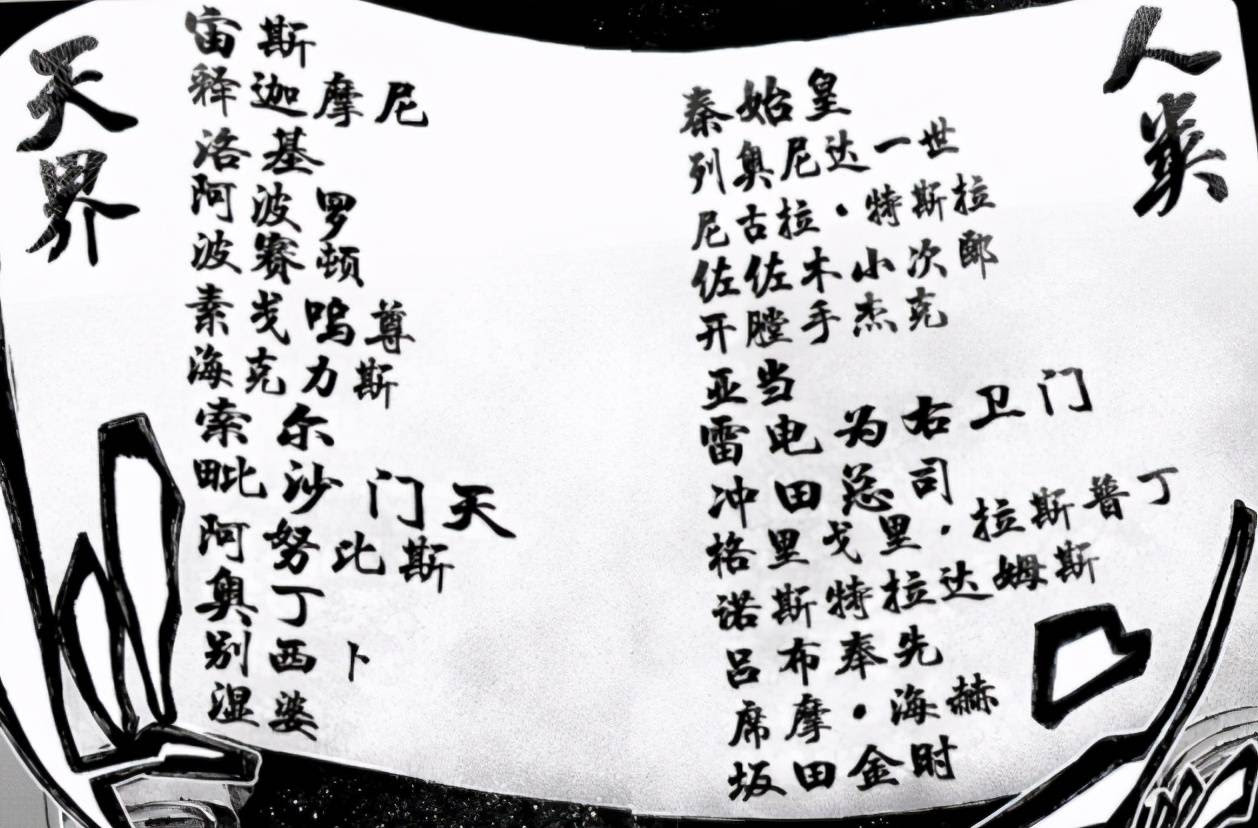 天界
宙斯
释迦摩尼
洛基
阿波罗
波赛顿
素戋呜尊
海克力斯
索尔
毗沙门天
阿努比斯
奥丁
别西卜
湿婆
人类
秦始皇
列奥尼达一世
尼古拉·特斯拉
佐佐木小次郎
开膛手杰克
亚当
雷电为右卫门
冲田总司
格里戈里·拉斯普丁
诺斯特拉达姆斯
吕布奉先
席摩·海赫
坂田金时